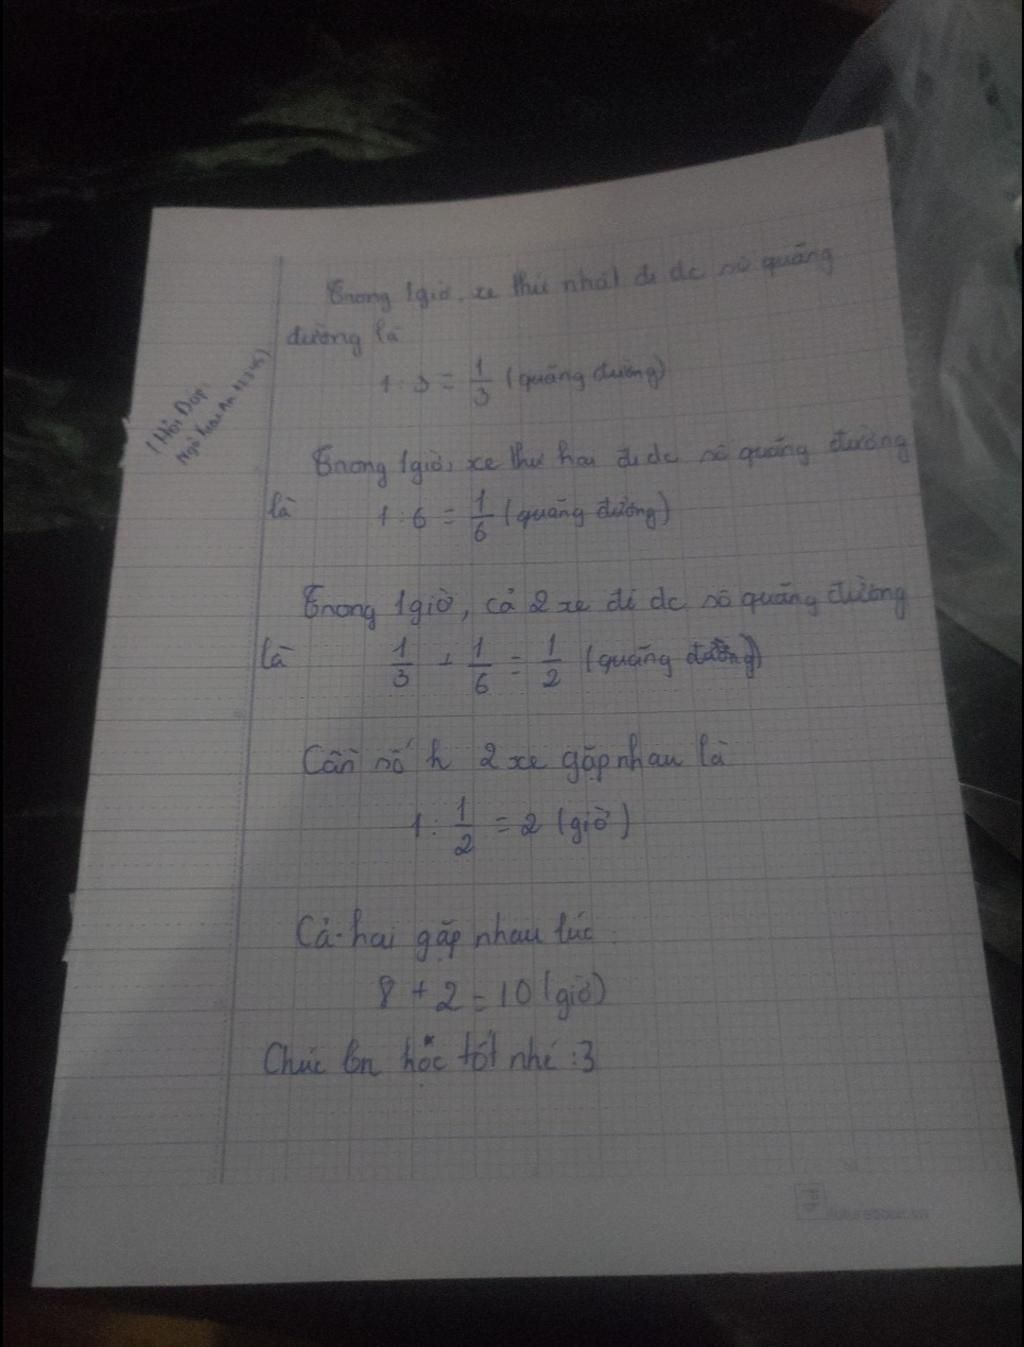 Trong 1 giờ, xe thứ nhất đi dc số quãng
đường là
1 : 3 = 1/3 (quãng đường)
(Hỏi Đáp
Trong 1 giờ, xe thứ hai đi dc số quãng đường
là 1 : 6 = 1/6 (quãng đường)
Trong 1 giờ, cả 2 xe đi dc số quãng đường
là 1/3 + 1/6 = 1/2 (quãng đường)
Cần số h 2 xe gặp nhau là
1 : 1/2 = 2 (giờ)
Cả hai gặp nhau lúc
8 + 2 = 10 (giờ)
Chúc bn học tốt nhé :3